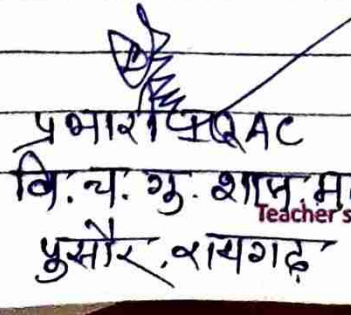 प्रभारी IQAC
वि. च. गु. शास. म
Teacher's
पुसौर, रायगढ़